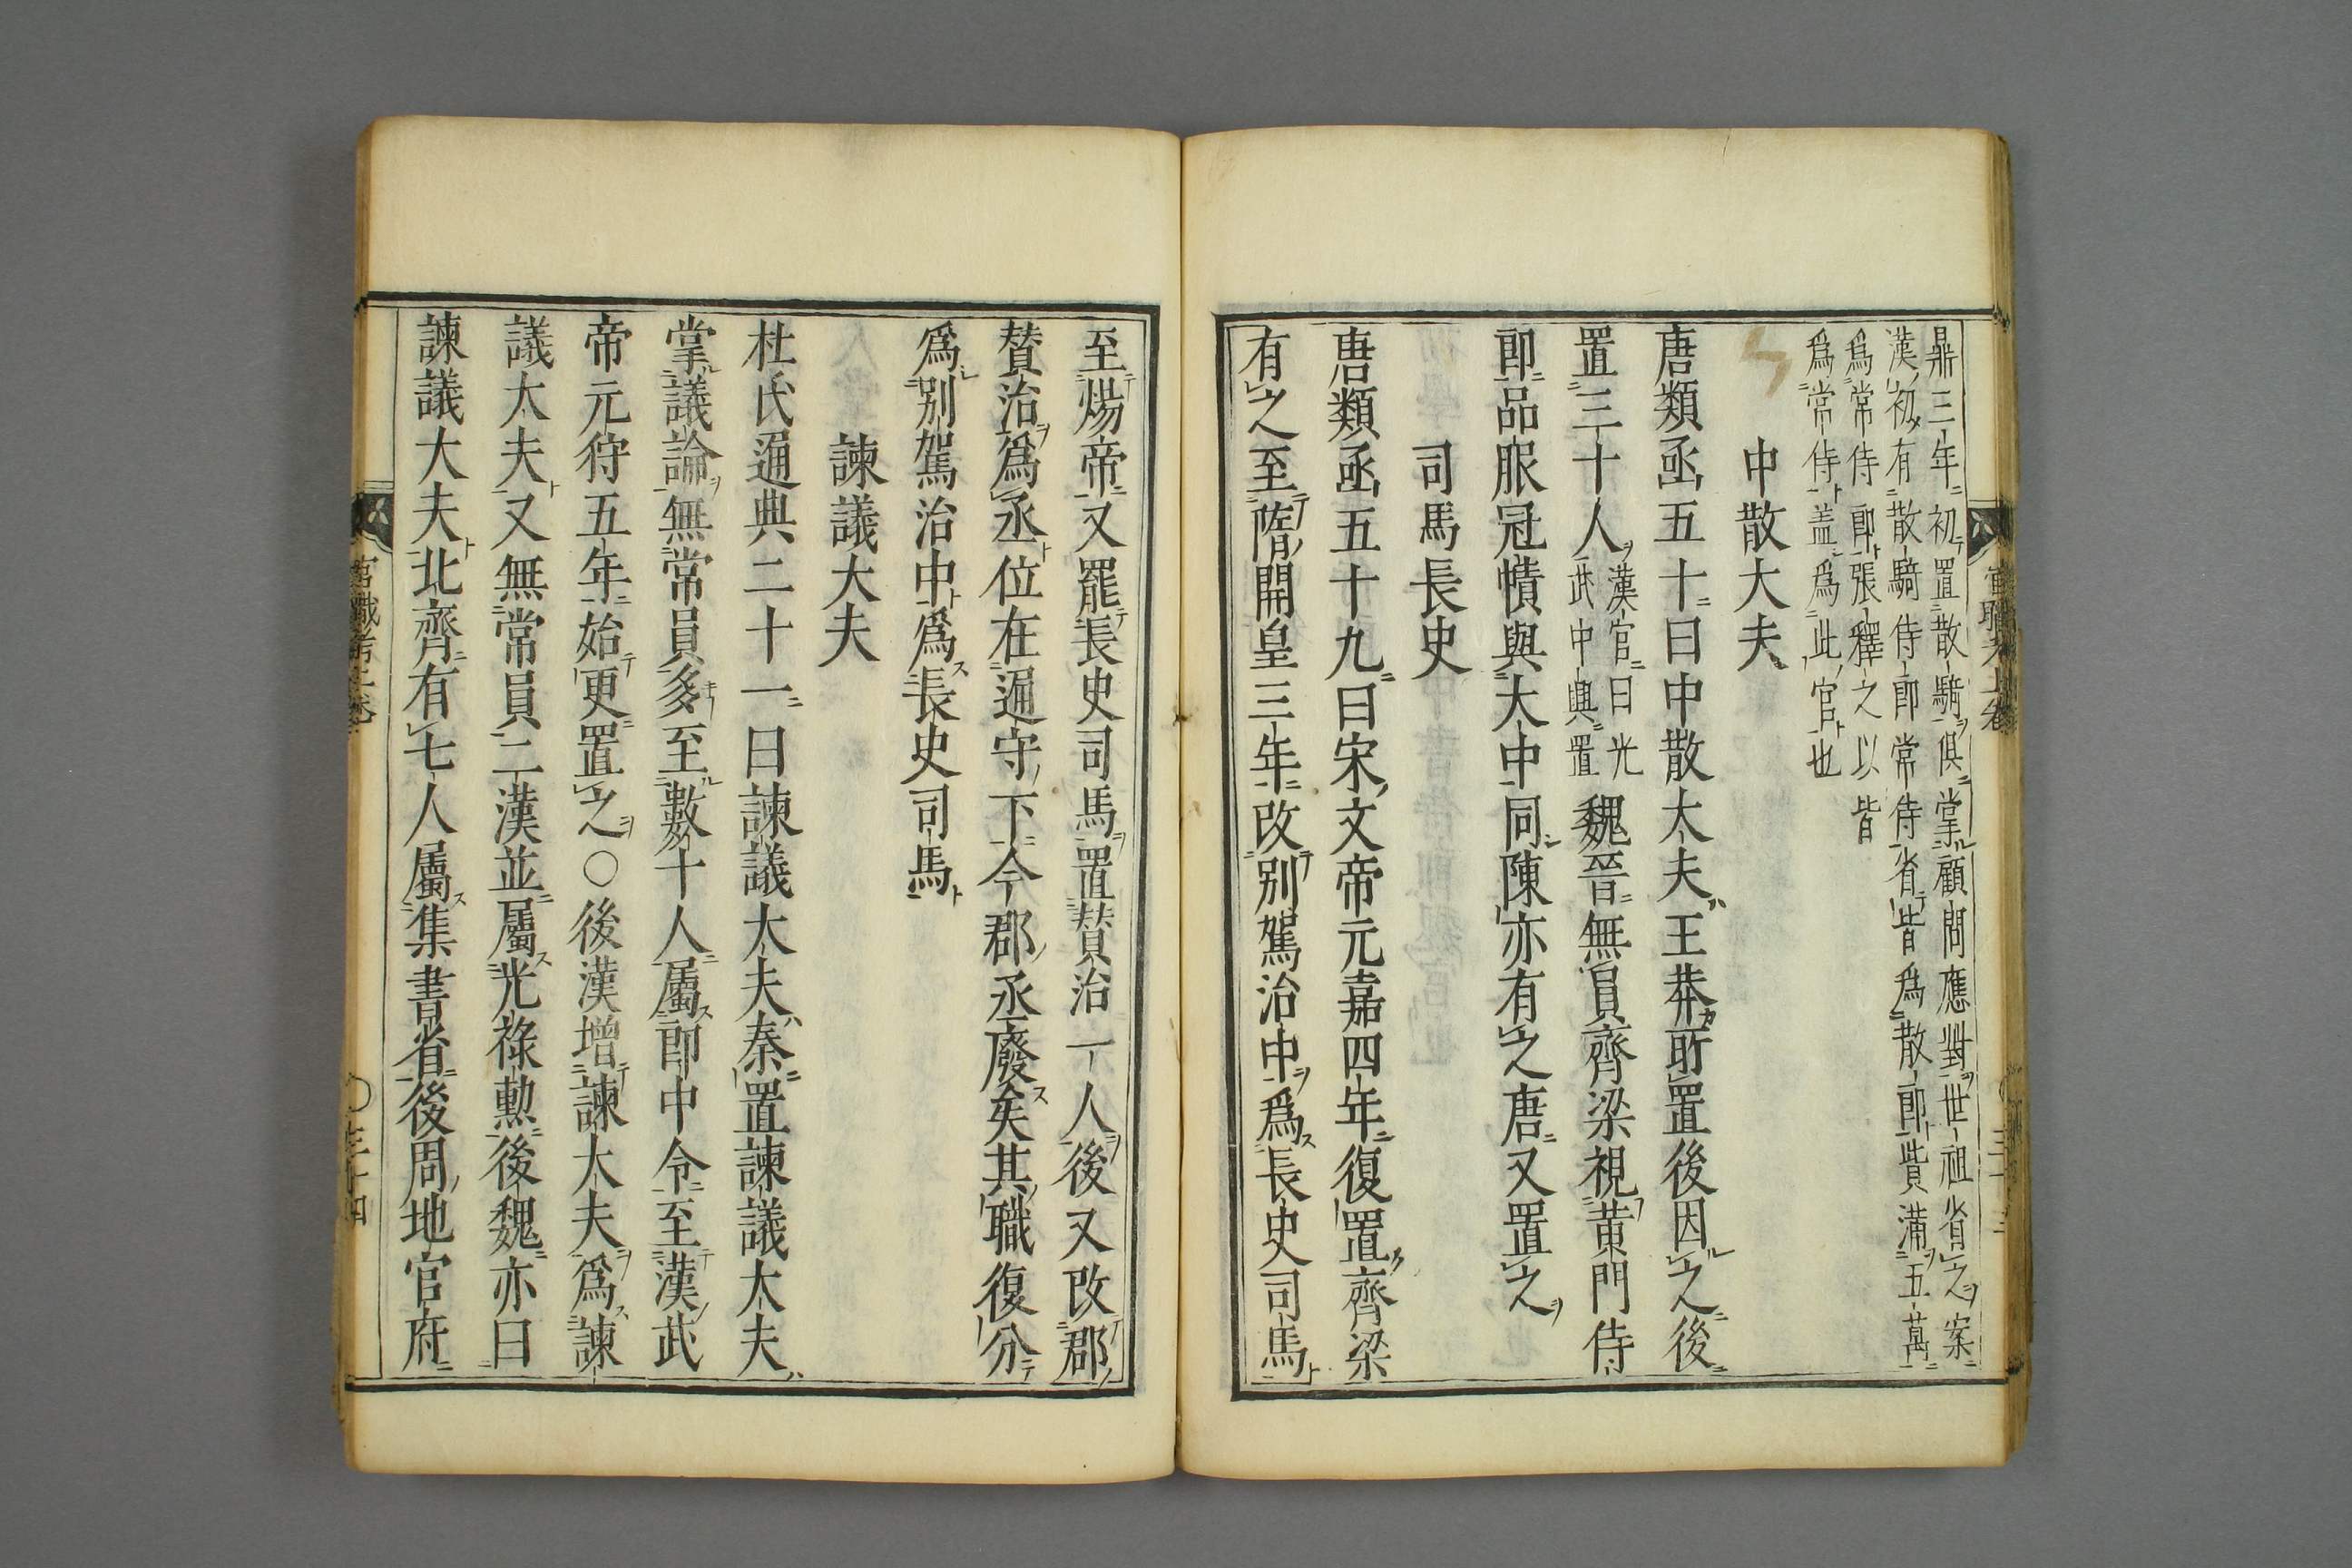 鼎三年初置散騎俱掌顧問應對世祖省之案
漢初有散騎侍郎常侍省皆爲散郎貲滿五萬
爲常侍郎張釋之以貲
爲常侍蓋爲此官也
中散大夫
唐類函五十曰中散大夫王莽所置後因之後
置三十人漢官曰光武中興置魏晉無員齊梁視黃門侍
郎品服冠幘與大中同陳亦有之唐又置之
司馬長史
唐類函五十九曰宋文帝元嘉四年復置齊梁
有之至隋開皇三年改別駕治中爲長史司馬
至煬帝又罷長史司馬置贊治一人後又改郡
贊治爲丞位在通守下今郡丞廢矣其職復分
爲別駕治中爲長史司馬
諫議大夫
杜氏通典二十一曰諫議大夫秦置諫議大夫
掌議論無常員多至數十人屬郎中令至漢武
帝元狩五年始更置之○後漢增諫大夫爲諫
議大夫又無常員二漢並屬光祿勳後魏亦曰
諫議大夫北齊有七人屬集書省後周地官府
官職考上卷
○三十四